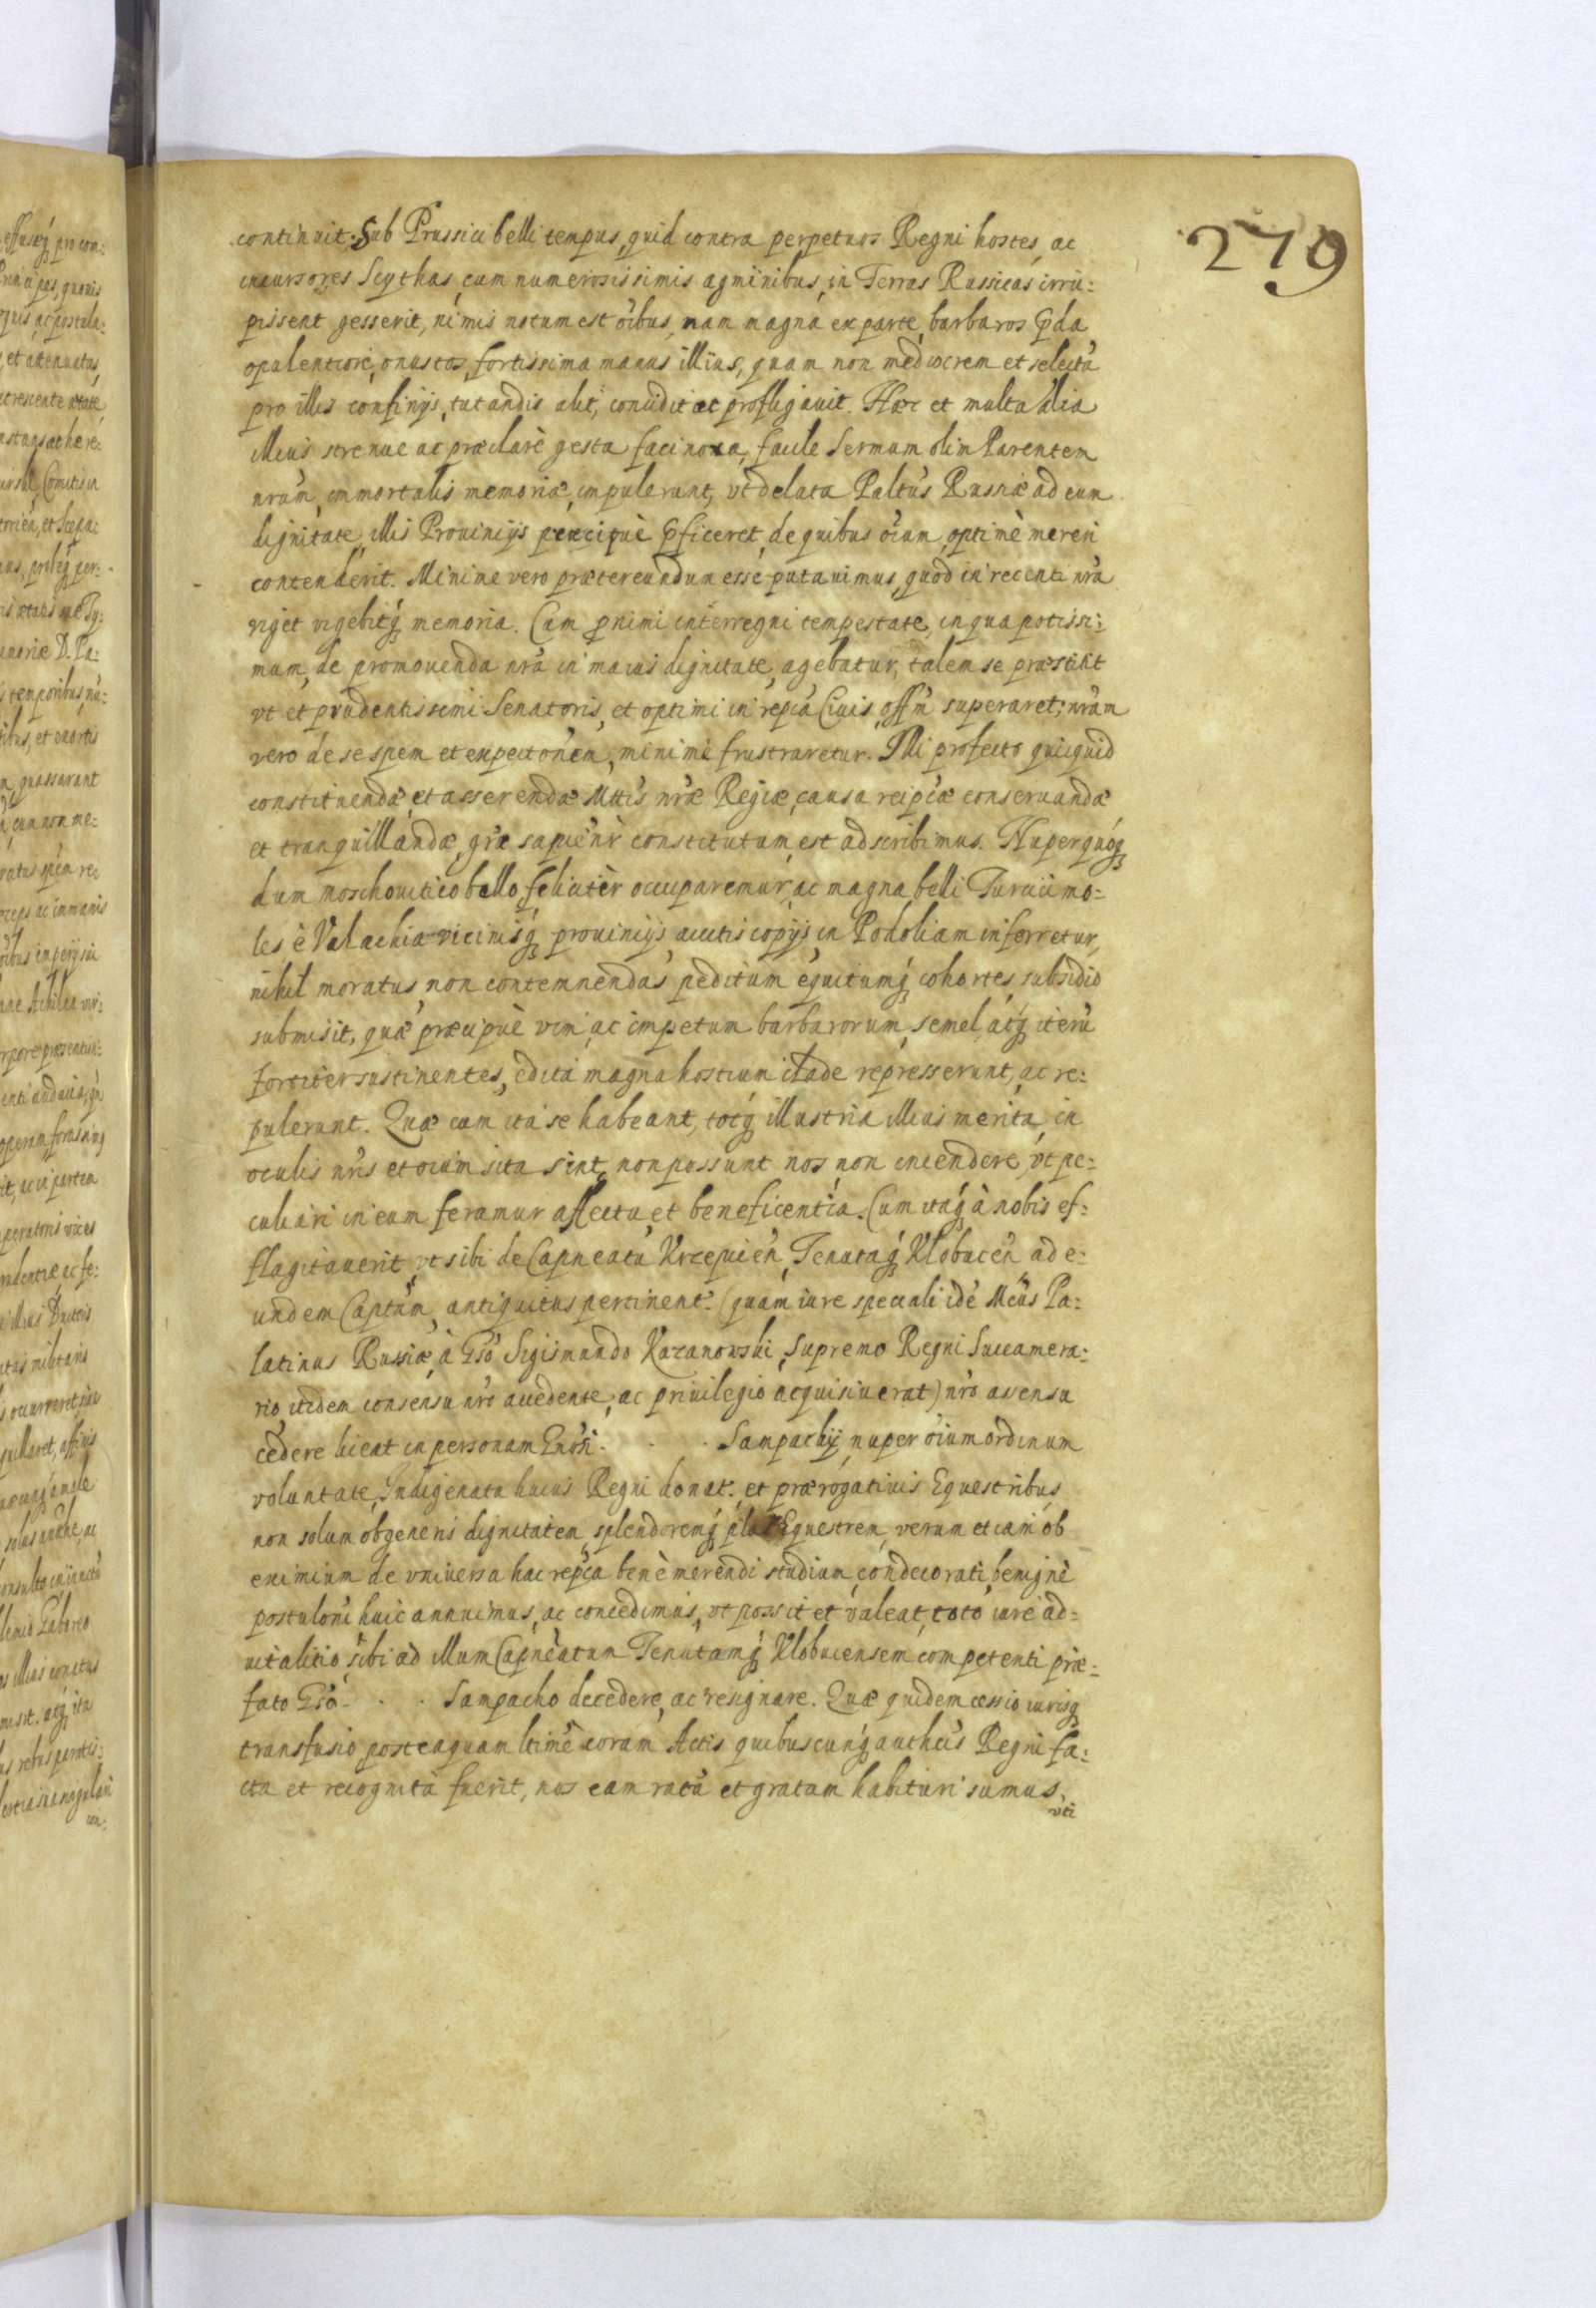 279
continuit. Sub Prussici belli tempus, quid contra perpetuos Regni hostes, ac
incursores Scythas, cum numerosissimis agminibus, in Terras Russicas irru:
pissent gesserit, nimis notum est oĩbus, nam magna ex parte, barbaros p̃da
opulentiore, onustos, fortissima manus illius, quam non mediocrem et selectã
pro illis confinijs, tutandis alit, concidit ac profligauit. Hæc et multa alia
illius strenue ac præclarè gesta facinora, facile Sermum olim Parentem
nrũm, immortalis memoriæ, impulerunt, vt delata Paltũs Russiæ ad eum
dignitate, illis Prouincijs præcipuè p̃ficeret, de quibus oĩum, optimè mereri
contenderit. Minime vero prætereundum esse putauimus, quod in recenti nrã
viget vigebitq́ memoria. Cum p̃nimi interregni tempestate, in qua potissi:
mum, de promouenda nrã in maius dignitate, agebatur, talem se præstitit
vt et prudentissimi Senatoris, et optimi in repcã Ciuis, offm̃ superaret; nrãm
vero de se spem et expectoñem, minimè frustraretur. Illi profecto quicquid
constituendæ et asserendæ Mttis nrǣ Regiæ, causa reipcæ conseruandæ
et tranquillandæ, grǣ sapieñr constitutum est adscribimus. Nuper quoq́
dum moschouitico bello, feliciter occuparemur, ac magna belli Turcici mo:
les è Valachia vicinisq́ prouincijs accitis copijs in Podoliam inferretur,
nihil moratus, non contemnendas peditum equitumq́ cohortes, subsidio
submisit, quæ præcipuè vim, ac impetum barbarorum, semel atq́ iterũ
fortiter sustinentes, edita magna hostium clade represserunt, ac re:
pulerunt. Quæ cum ita se habeant, totq́ illustria illius merita, in
oculis nrĩs et oĩum sita sint, non possunt nos non incendere, vt pe:
culiari in eum feramur affectu et beneficentia. Cum itaq́ à nobis ef:
flagitauerit, vt sibi de Capneatũ Krzepicen̄, Tenutaq́ Klobucen̄ ad e:
undem Captũm, antiquitus pertinent: (quam iure speciali idẽ Mcũs Pa:
latinus Russiæ, à Gsõ Sigismundo Kazanowski, Supremo Regni Succamera:
rio itidem consensu nrõ accedente, ac priuilegio acquisiuerat) nrõ asensu
cedere liceat in personam Gnõsi . . . Sampachij, nuper oĩum ordinum
voluntate, Indigenata huius Regni donat: et prærogatiuis Equestribus
non solum ob generis dignitatem, splendoremq́ plãt Equestrem, verum etiam ob
eximium de vniuersa hac repcã benè merendi studium, condecorati, benignè
postuloñi huic annuimus, ac concedimus, vt possit et valeat, toto iure ad:
uitalitio sibi ad illum Capneatum Tenutamq́ Klobucensem competenti præ:
fato Gsõ . . . Sampacho decedere, ac resignare. Quæ quidem cessio iurisq́
transfusio posteaquam ltimè coram Actis quibuscunq́ authcis Regni fa:
cta et recognita fuerit, nos eam ratã et gratam habituri sumus,
vti